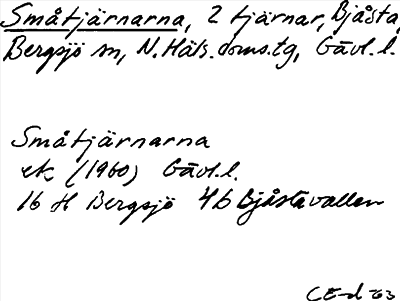 Småtjärnarna, 2 tjärnar, Bjåsta,
Bergsjö sn, N. Häls. doms.tg, Gävl.l.
Småtjärnarna
ek (1960) Gävl.l.
16 H Bergsjö 4b Bjåstavallen
CE-d -63